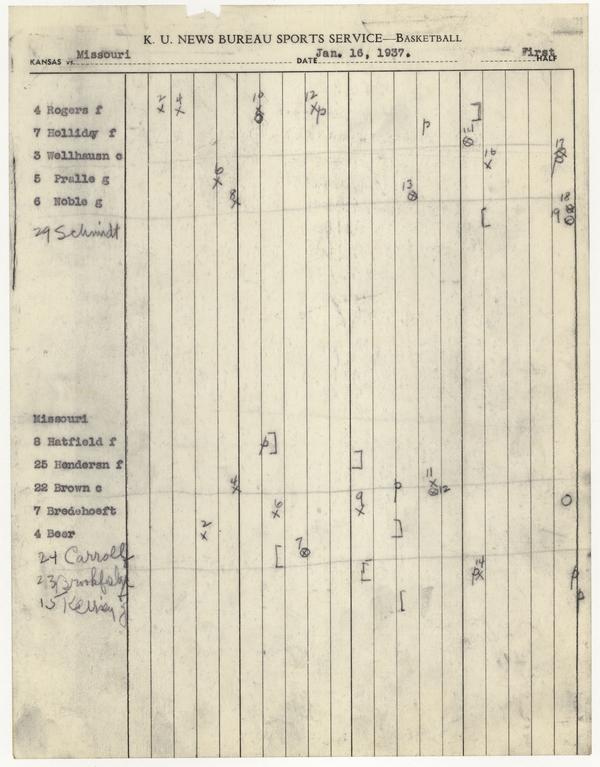 K. U. NEWS BUREAU SPORTS SERVICE—BASKETBALL
KANSAS vs. Missouri DATE Jan. 16, 1937. First HALF
2 4 10 12
4 Rogers f x x x x p ]
7 Holliday f p 11
3 Wellhausn c 16 17
5 Pralle g 6 x 13
6 Noble g 8 x 18
29 Schmidt [ 19
Missouri
8 Hatfield f p ]
25 Hendersn f ]
22 Brown c 4 x p 11 x 12 O
7 Bredehoeft x 6 9 x
4 Beer 2 x ]
24 Carroll [ 7
23 [ p x 14 p
15 [ p